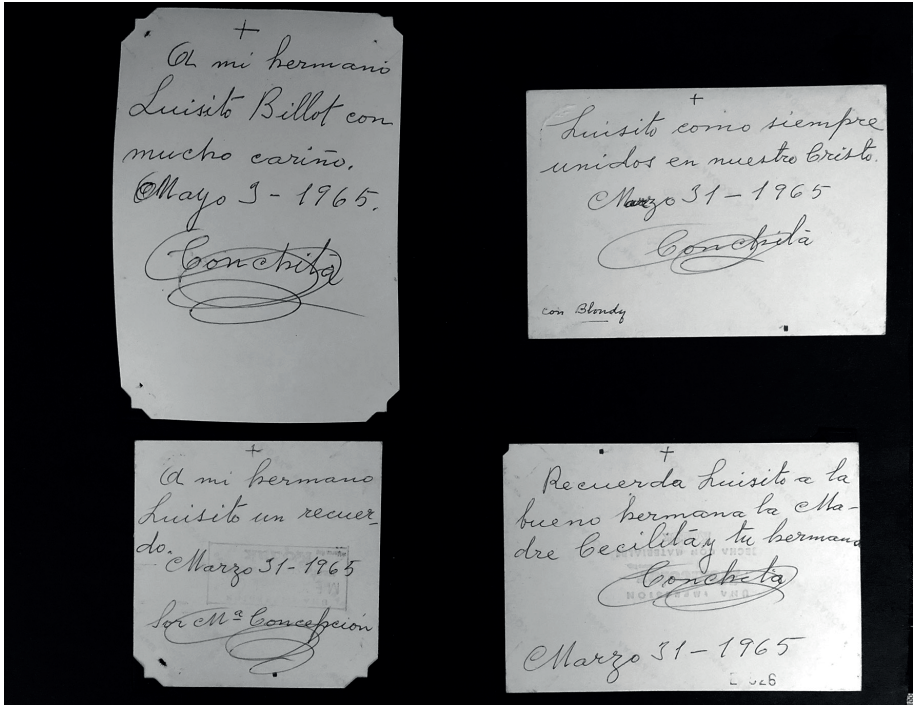 +
A mi hermano
Luisito Billot con
mucho cariño.
Mayo 3-1965.
Conchita
+
Luisito como siempre
unidos en nuestro Cristo.
Marzo 31-1965
Conchita
con Blondy
+
A mi hermano
Luisito un recuer-
do.
Marzo 31-1965
Sor Mª Concepción
+
Recuerda Luisito a la
bueno hermana la Ma-
dre Cecilita y tu hermana
Conchita
Marzo 31-1965